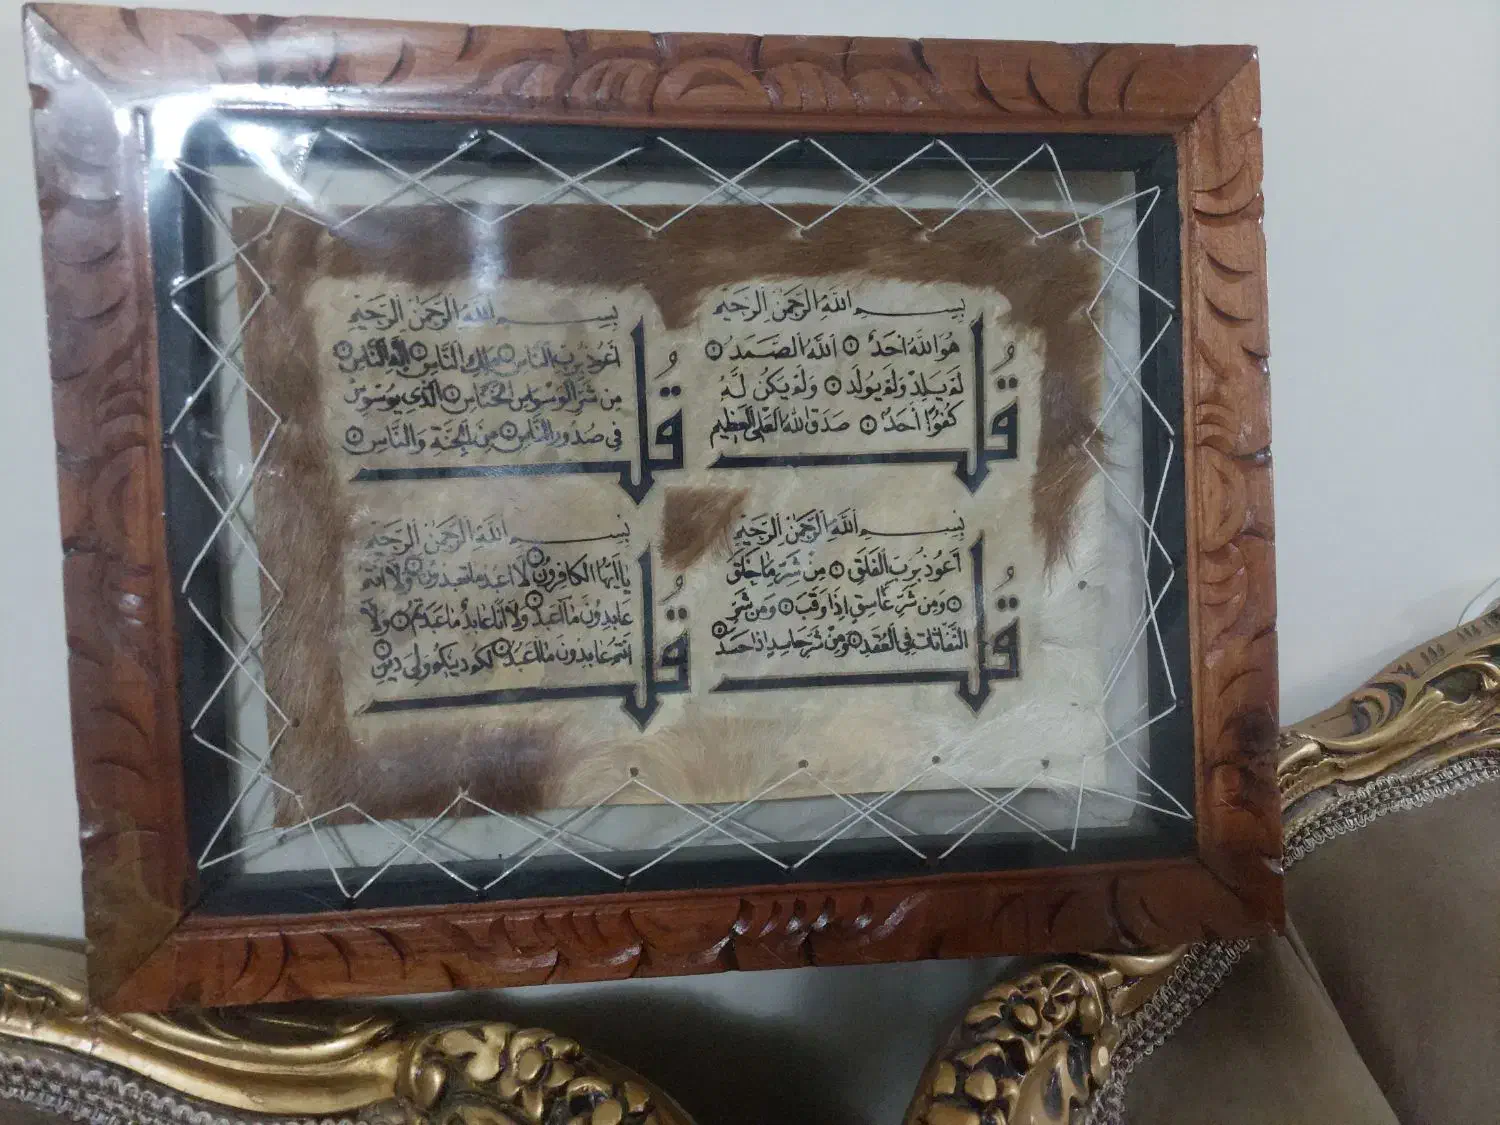 بِسْمِ اللَّهِ الرَّحْمَنِ الرَّحِيمِ
قُل
هُوَ اللَّهُ أَحَدٌ ۝ اللَّهُ الصَّمَدُ ۝
لَمْ يَلِدْ وَلَمْ يُولَدْ ۝ وَلَمْ يَكُن لَّهُ
كُفُوًا أَحَدٌ ۝ صَدَقَ اللَّهُ الْعَلِيُّ الْعَظِيمُ
بِسْمِ اللَّهِ الرَّحْمَنِ الرَّحِيمِ
قُل
أَعُوذُ بِرَبِّ النَّاسِ ۝ مَلِكِ النَّاسِ ۝ إِلَهِ النَّاسِ ۝
مِن شَرِّ الْوَسْوَاسِ الْخَنَّاسِ ۝ الَّذِي يُوَسْوِسُ
فِي صُدُورِ النَّاسِ ۝ مِنَ الْجِنَّةِ وَالنَّاسِ ۝
بِسْمِ اللَّهِ الرَّحْمَنِ الرَّحِيمِ
قُل
أَعُوذُ بِرَبِّ الْفَلَقِ ۝ مِن شَرِّ مَا خَلَقَ
۝ وَمِن شَرِّ غَاسِقٍ إِذَا وَقَبَ ۝ وَمِن شَرِّ
النَّفَّاثَاتِ فِي الْعُقَدِ ۝ وَمِن شَرِّ حَاسِدٍ إِذَا حَسَدَ ۝
بِسْمِ اللَّهِ الرَّحْمَنِ الرَّحِيمِ
قُل
يَا أَيُّهَا الْكَافِرُونَ ۝ لَا أَعْبُدُ مَا تَعْبُدُونَ ۝ وَلَا أَنتُمْ
عَابِدُونَ مَا أَعْبُدُ ۝ وَلَا أَنَا عَابِدٌ مَّا عَبَدتُّمْ ۝ وَلَا
أَنتُمْ عَابِدُونَ مَا أَعْبُدُ ۝ لَكُمْ دِينُكُمْ وَلِيَ دِينِ ۝